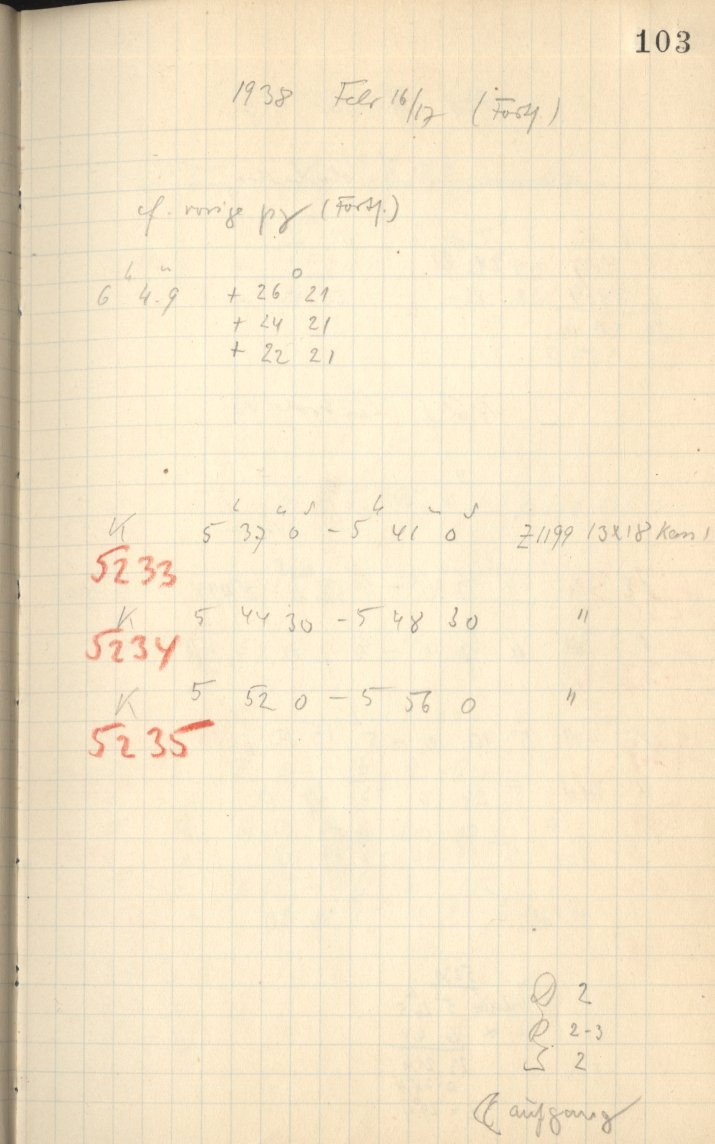 103
1938 Febr 16/17 (Forts.)
cf. vorige pg (Forts.)
h m o
6 4.9 + 26 21
+ 24 21
+ 22 21
h m s h m s
K 5 37 0 - 5 41 0 Z1199 13x18 Kass 1
5233
K 5 44 30 - 5 48 30 "
5234
K 5 52 0 - 5 56 0 "
5235
D 2
R 2-3
S 2
☾ aufgang